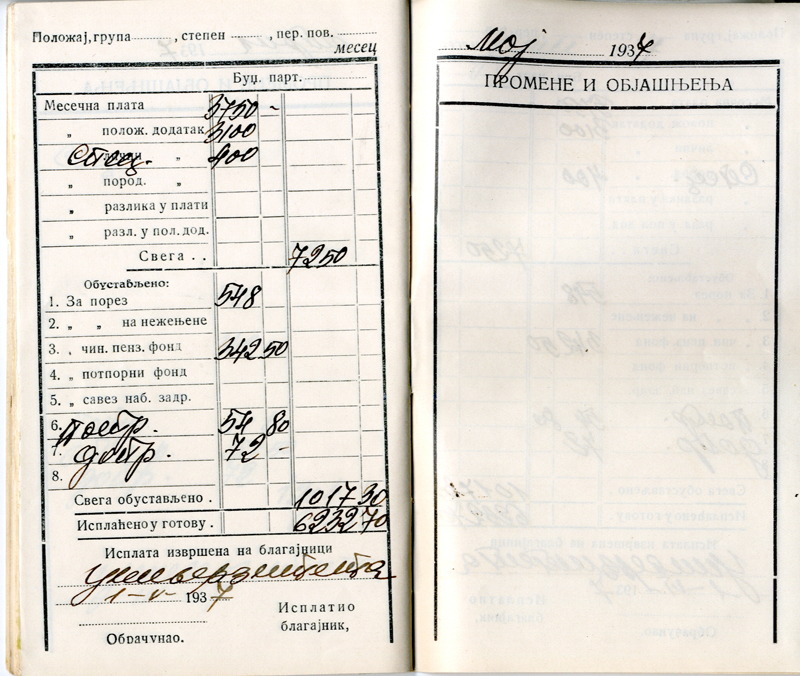 Положај, група ............, степен ........, пер. пов. ........
месец
Буџ. парт.
Месечна плата 3750 -
„ полож. додатак 3100
Спец. „ 400
„ пород. „
„ разлика у плати
„ разл. у пол. дод.
Свега . . 7250
Обустављено:
1. За порез 548
2. „ „ на нежењене
3. „ чин. пенз. фонд 342 50
4. „ потпорни фонд
5. „ савез наб. задр.
6. 54 80
7. 72 -
8.
Свега обустављено . 1017 30
Исплаћено у готову . 6232 70
Исплата извршена на благајници
Универзитета
1-V- 1937
Исплатио
благајник,
Обрачунао,
мај 1937
ПРОМЕНЕ И ОБЈАШЊЕЊА